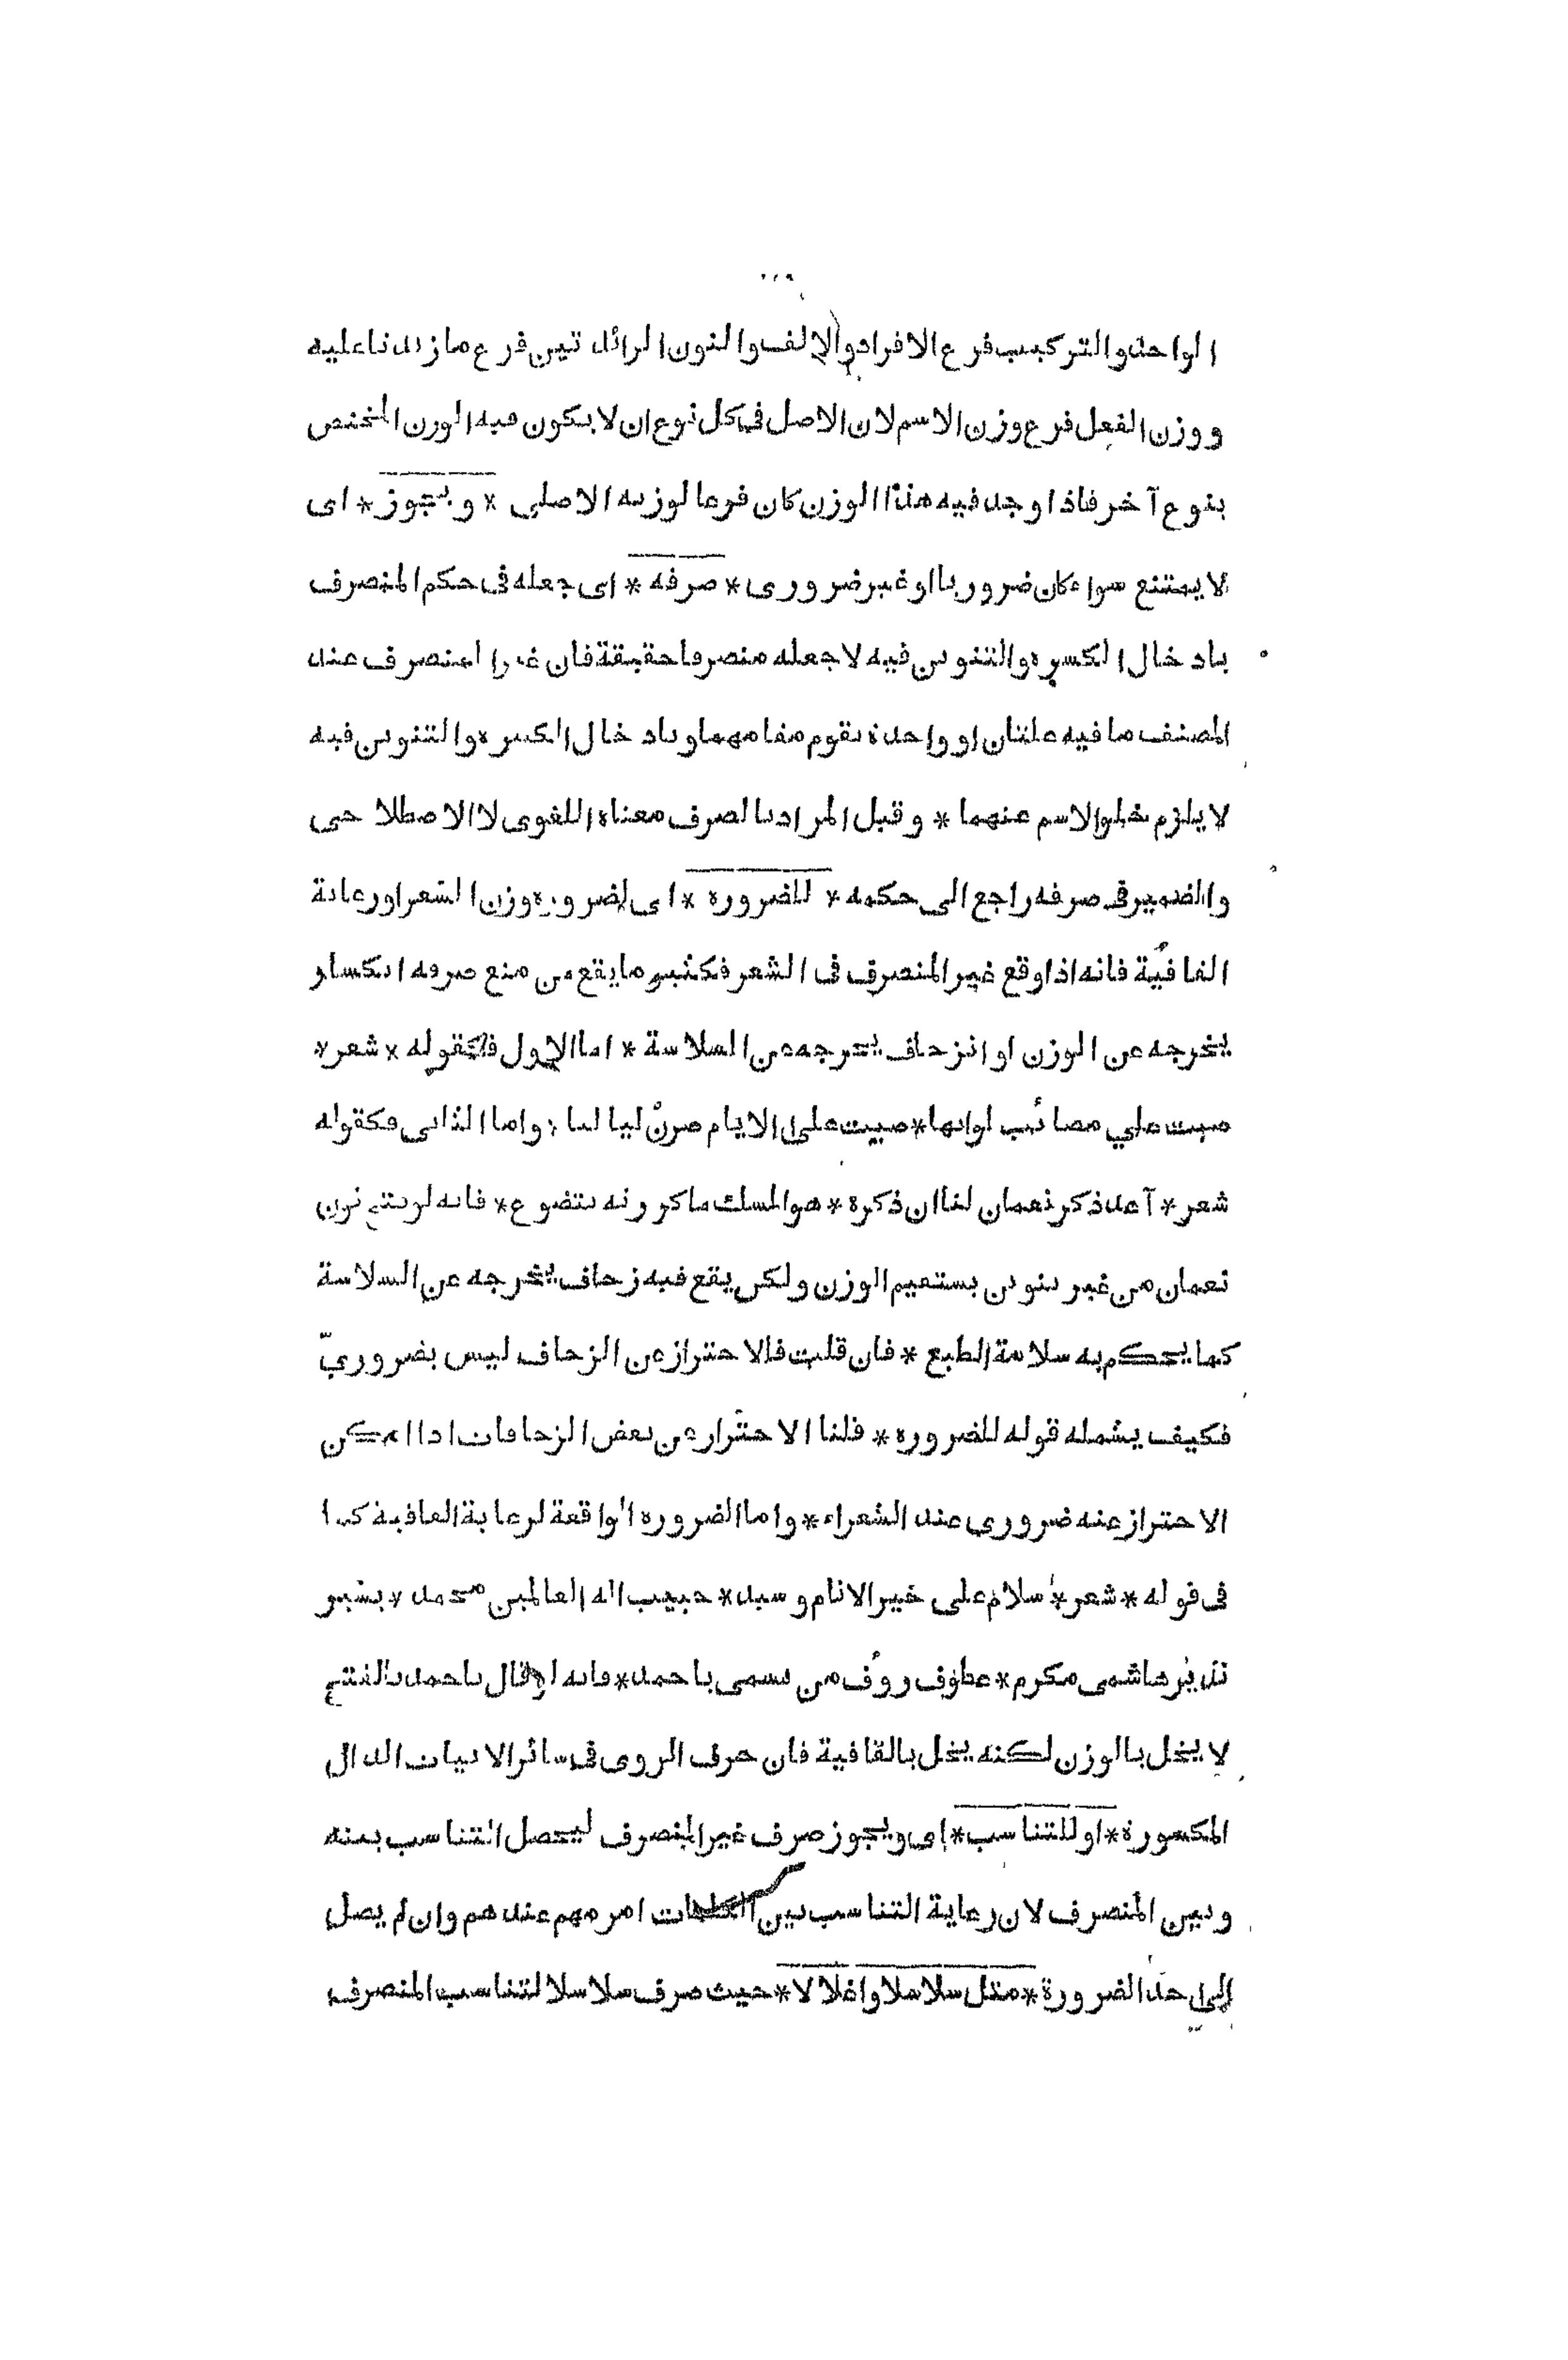 الواحد والتركيب فرع الافراد والالف والنون الزائد تين فرع ما زيدتا عليه
ووزن الفعل فرع وزن الاسم لان الاصل في كل نوع ان لا يكون فيه الوزن المختص
بنوع آخر فاذا وجد فيه هذا الوزن كان فرعا لوزنه الاصلى * ويجوز * اى
لا يمتنع سواء كان ضروريا او غير ضرورى * صرفه * اى جعله فى حكم المنصرف
باد خال الكسرة والتنوين فيه لا جعله منصرفا حقيقة فان غير المنصرف عند
المصنف ما فيه علتان او واحدة تقوم مقامهما وباد خال الكسرة والتنوين فيه
لا يلزم خلو الاسم عنهما * وقيل المراد بالصرف معناه اللغوى لا الاصطلاحى
والضمير فى صرفه راجع الى حكمه * للضرورة * اى لضرورة وزن الشعر اور عاية
القافية فانه اذا وقع غير المنصرف فى الشعر فكثيرا ما يقع من منع صرفه انكسار
يخرجه عن الوزن او انزحاف يخرجه عن السلاسة * اما الاول فكقوله * شعر *
صبت علي مصائب لوانها * صبت على الايام صرن لياليا * واما الثانى فكقوله
شعر * آعد ذكر نعمان لنا ان ذكره * هو المسك ما كررته يتضوع * فانه لو فتح نون
نعمان من غير تنوين يستقيم الوزن ولكن يقع فيه زحاف يخرجه عن السلاسة
كما يحكم به سلامة الطبع * فان قلت فالاحتراز عن الزحاف ليس بضروريّ
فكيف يشمله قوله للضرورة * قلنا الاحتراز عن بعض الزحافات اذا امكن
الاحتراز عنه ضروري عند الشعراء * واما الضرورة الواقعة لرعاية القافية كما
فى قوله * شعر * سلام على خير الانام وسيد * حبيب اله العالمين محمد * بشير
نذير هاشمى مكرم * عطوف روف من يسمى باحمد * فانه لو قال باحمد بالفتح
لا يخل بالوزن لكنه يخل بالقافية فان حرف الروى فى سائر الابيات الدال
المكسورة * او للتناسب * اى ويجوز صرف غير المنصرف ليحصل التناسب بينه
وبين المنصرف لان رعاية التناسب بين الكلمات امر مهم عند هم وان لم يصل
الى حد الضرورة * مثل سلاسلا واغلالا * حيث صرف سلاسلا لتناسب المنصرف